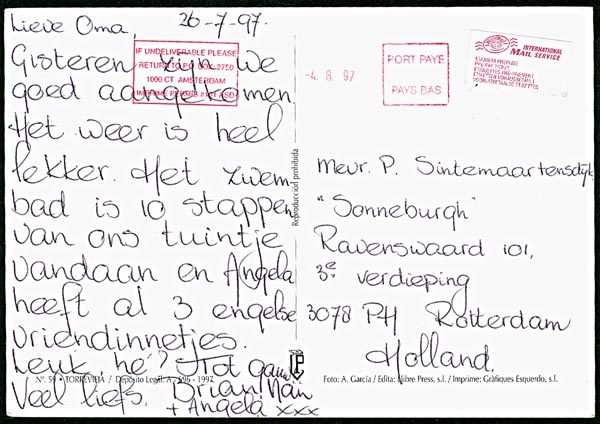 Lieve Oma, 26-7-97.
Gisteren zijn we
goed aangekomen
Het weer is heel
lekker. Het zwem
bad is 10 stappen
van ons tuintje
vandaan en Angela
heeft al 3 engelse
vriendinnetjes.
Leuk, hé? Tot gauw
Veel liefs, Brian, Nan
+ Angela xxx
IF UNDELIVERABLE PLEASE
RETURN TO P.O. BOX 2750
1000 CT AMSTERDAM
-4. 8. 97
PORT PAYE
PAYS BAS
INTERNATIONAL
MAIL SERVICE
Reproducción prohibida
Mevr. P. Sintemaartensdijk
"Sonneburgh"
Ravenswaard 101,
3e verdieping
3078 PH Rotterdam
Holland.
Nº. 59 • TORREVIEJA / Depósito Legal: A-/96 - 1997
Foto: A. García / Edita: llibre Press, s.l. / Imprime: Gràfiques Esquerdo, s.l.